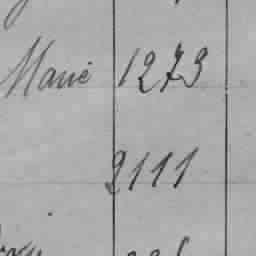 Marie 1273
2111